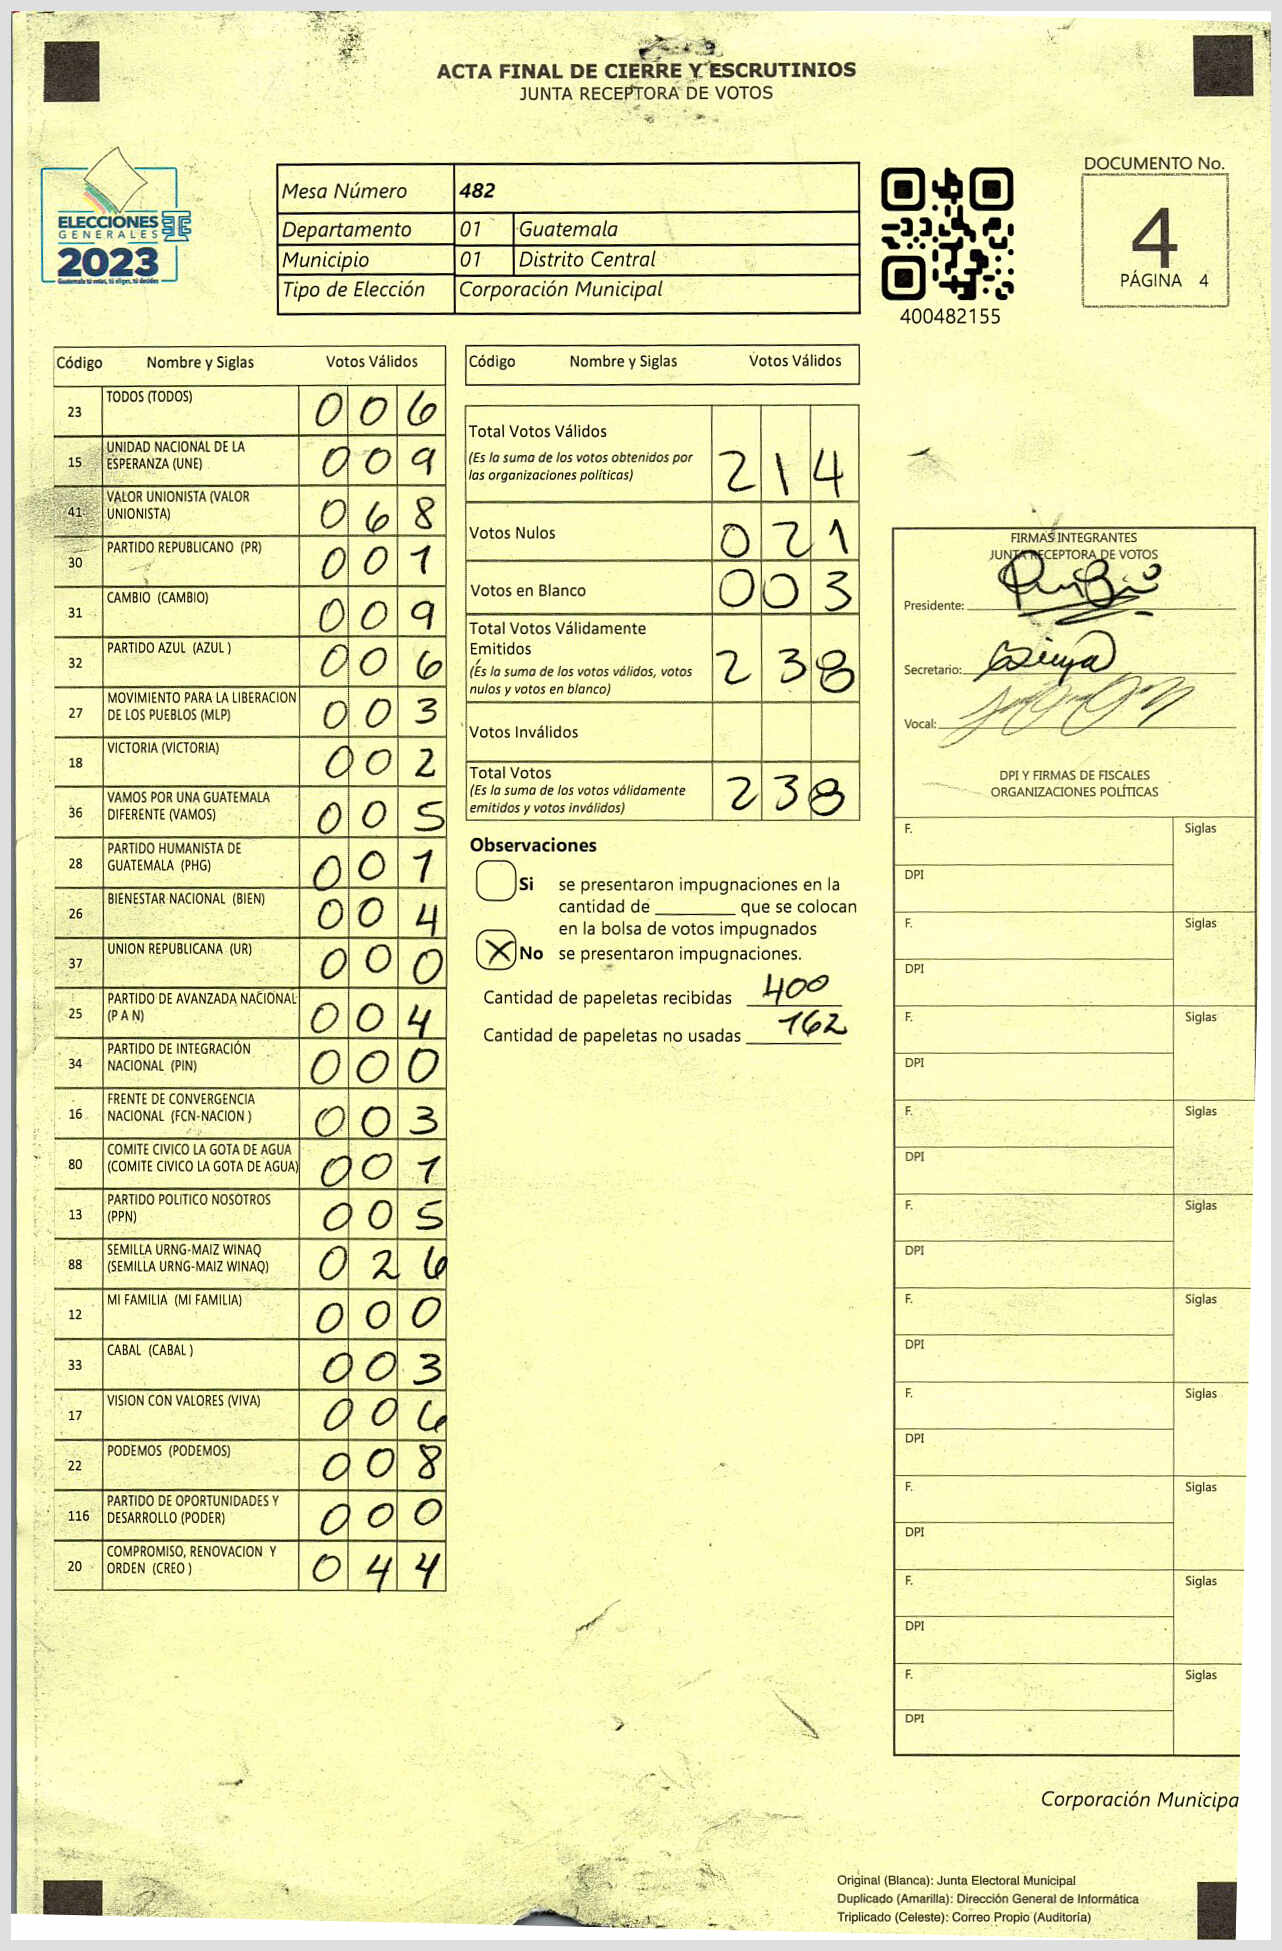 ACTA FINAL DE CIERRE Y ESCRUTINIOS
JUNTA RECEPTORA DE VOTOS
ELECCIONES
GENERALES
2023
Guatemala tú votas, tú eliges, tú decides
Mesa Número 482
Departamento 01 Guatemala
Municipio 01 Distrito Central
Tipo de Elección Corporación Municipal
400482155
DOCUMENTO No.
4
PÁGINA 4
Código Nombre y Siglas Votos Válidos
23 TODOS (TODOS) 0 0 6
15 UNIDAD NACIONAL DE LA ESPERANZA (UNE) 0 0 9
41 VALOR UNIONISTA (VALOR UNIONISTA) 0 6 8
30 PARTIDO REPUBLICANO (PR) 0 0 1
31 CAMBIO (CAMBIO) 0 0 9
32 PARTIDO AZUL (AZUL ) 0 0 6
27 MOVIMIENTO PARA LA LIBERACION DE LOS PUEBLOS (MLP) 0 0 3
18 VICTORIA (VICTORIA) 0 0 2
36 VAMOS POR UNA GUATEMALA DIFERENTE (VAMOS) 0 0 5
28 PARTIDO HUMANISTA DE GUATEMALA (PHG) 0 0 1
26 BIENESTAR NACIONAL (BIEN) 0 0 4
37 UNION REPUBLICANA (UR) 0 0 0
25 PARTIDO DE AVANZADA NACIONAL (P A N) 0 0 4
34 PARTIDO DE INTEGRACIÓN NACIONAL (PIN) 0 0 0
16 FRENTE DE CONVERGENCIA NACIONAL (FCN-NACION ) 0 0 3
80 COMITE CIVICO LA GOTA DE AGUA (COMITE CIVICO LA GOTA DE AGUA) 0 0 1
13 PARTIDO POLITICO NOSOTROS (PPN) 0 0 5
88 SEMILLA URNG-MAIZ WINAQ (SEMILLA URNG-MAIZ WINAQ) 0 2 6
12 MI FAMILIA (MI FAMILIA) 0 0 0
33 CABAL (CABAL ) 0 0 3
17 VISION CON VALORES (VIVA) 0 0 6
22 PODEMOS (PODEMOS) 0 0 8
116 PARTIDO DE OPORTUNIDADES Y DESARROLLO (PODER) 0 0 0
20 COMPROMISO, RENOVACION Y ORDEN (CREO ) 0 4 4
Código Nombre y Siglas Votos Válidos
Total Votos Válidos
(Es la suma de los votos obtenidos por
las organizaciones políticas) 2 1 4
Votos Nulos 0 2 1
Votos en Blanco 0 0 3
Total Votos Válidamente
Emitidos
(Es la suma de los votos válidos, votos
nulos y votos en blanco) 2 3 8
Votos Inválidos
Total Votos
(Es la suma de los votos válidamente
emitidos y votos inválidos) 2 3 8
Observaciones
Si se presentaron impugnaciones en la
cantidad de ________ que se colocan
en la bolsa de votos impugnados
X No se presentaron impugnaciones.
Cantidad de papeletas recibidas 400
Cantidad de papeletas no usadas 162
FIRMAS INTEGRANTES
JUNTA RECEPTORA DE VOTOS
Presidente:
Secretario:
Vocal:
DPI Y FIRMAS DE FISCALES
ORGANIZACIONES POLÍTICAS
F. Siglas
DPI
F. Siglas
DPI
F. Siglas
DPI
F. Siglas
DPI
F. Siglas
DPI
F. Siglas
DPI
F. Siglas
DPI
F. Siglas
DPI
F. Siglas
DPI
F. Siglas
DPI
Corporación Municipa
Original (Blanca): Junta Electoral Municipal
Duplicado (Amarilla): Dirección General de Informática
Triplicado (Celeste): Correo Propio (Auditoría)